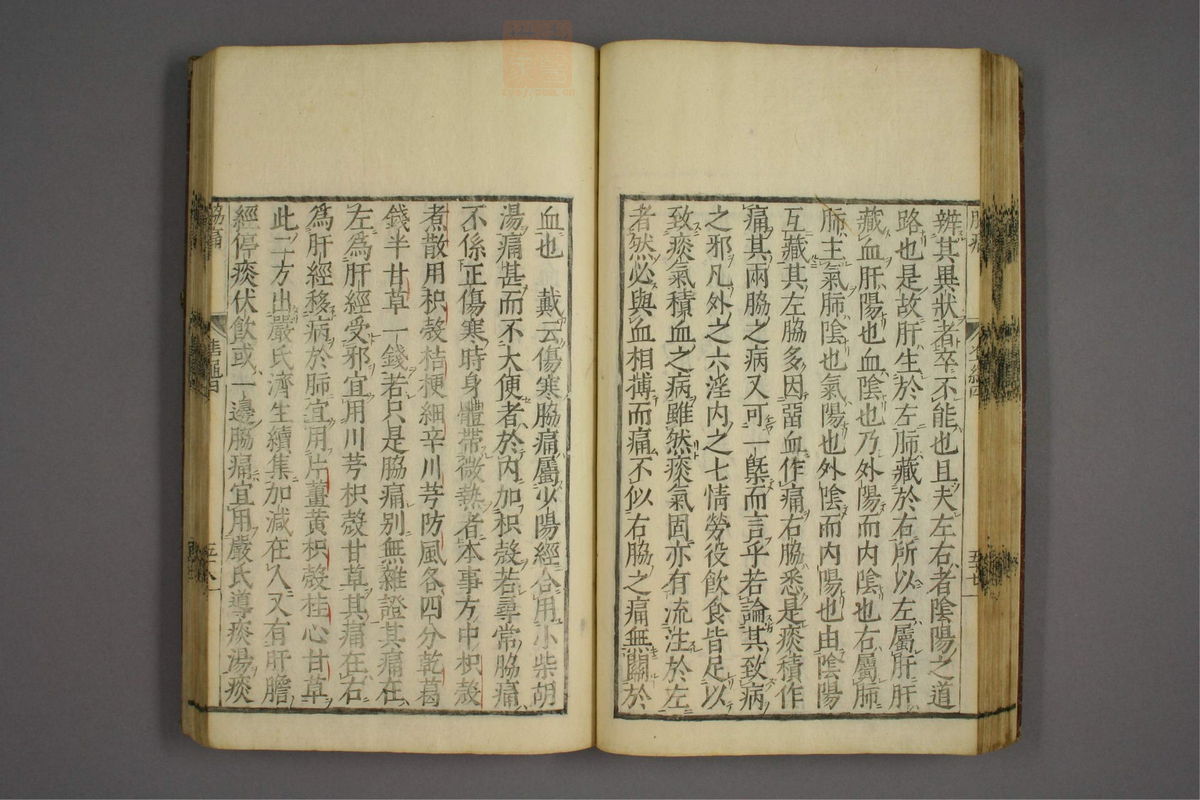 辨其異狀者卒不能也且夫左右者陰陽之道
路也是故肝生於左肺藏於右所以左屬肝肝
藏血肝陽也血陰也乃外陽而內陰也右屬肺
肺主氣肺陰也氣陽也外陰而內陽也由陰陽
互藏其左脇多因畱血作痛右脇悉是痰積作
痛其兩脇之病又可一槩而言乎若論其致病
之邪凡外之六淫內之七情勞役飲食皆足以
致痰氣積血之病雖然痰氣固亦有流注於左
者然必與血相搏而痛不似右脇之痛無關於
血也　戴云傷寒脇痛屬少陽經合用小柴胡
湯痛甚而不大便者於內加枳殼若尋常脇痛
不係正傷寒時身體帶微熱者本事方中枳殼
煮散用枳殼桔梗細辛川芎防風各四分乾葛
錢半甘草一錢若只是脇痛別無雜證其痛在
左為肝經受邪宜用川芎枳殼甘草其痛在右
為肝經移病於肺宜用片薑黃枳殼桂心甘草
此二方出嚴氏濟生續集加減在人又有肝膽
經停痰伏飲或一邊脇痛宜用嚴氏導痰湯痰
脇痛